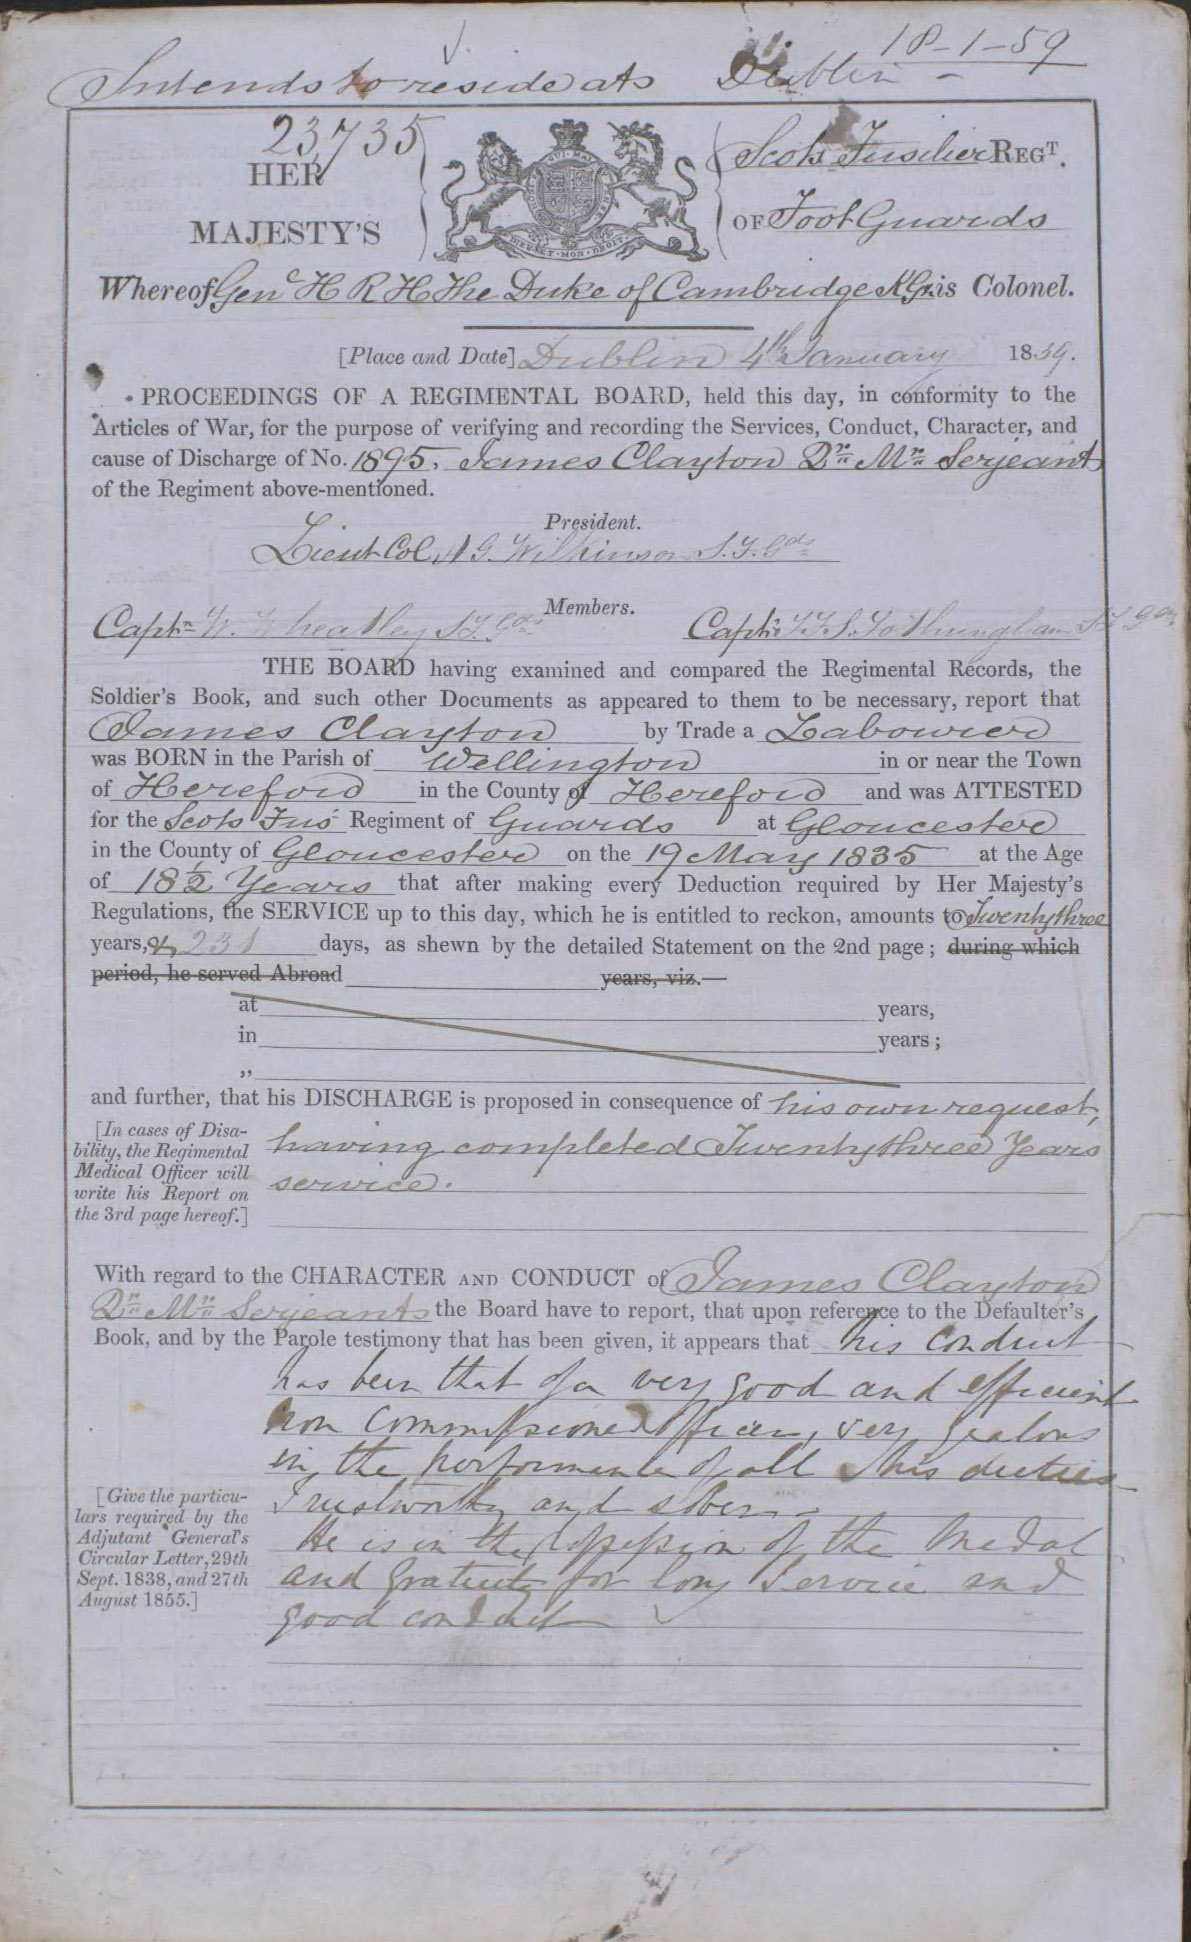 18-1-59
Intends to reside at Dublin -
23,735
HER
MAJESTY'S
DIEU ET MON DROIT
Scots Fusilier REGT.
OF Foot Guards
Whereof Genl H R H The Duke of Cambridge KG is Colonel.
[Place and Date] Dublin 4th January 1859.
PROCEEDINGS OF A REGIMENTAL BOARD, held this day, in conformity to the
Articles of War, for the purpose of verifying and recording the Services, Conduct, Character, and
cause of Discharge of No. 1895, James Clayton Qr Mr Serjeant
of the Regiment above-mentioned.
President.
Lieut Col A G. Wilkinson S. F. Gds
Members.
Captn W. Wheatley S F Gds Captn S F Gds
THE BOARD having examined and compared the Regimental Records, the
Soldier's Book, and such other Documents as appeared to them to be necessary, report that
James Clayton by Trade a Labourer
was BORN in the Parish of Wellington in or near the Town
of Hereford in the County of Hereford and was ATTESTED
for the Scots Fus Regiment of Guards at Gloucester
in the County of Gloucester on the 19 May 1835 at the Age
of 18½ Years that after making every Deduction required by Her Majesty's
Regulations, the SERVICE up to this day, which he is entitled to reckon, amounts to Twenty three
years, & 231 days, as shewn by the detailed Statement on the 2nd page; during which
period, he served Abroad years, viz.—
at years,
in years;
„
and further, that his DISCHARGE is proposed in consequence of his own request,
having completed Twenty three Years
service.
[In cases of Disa-
bility, the Regimental
Medical Officer will
write his Report on
the 3rd page hereof.]
With regard to the CHARACTER AND CONDUCT of James Clayton
Qr Mr Serjeant the Board have to report, that upon reference to the Defaulter's
Book, and by the Parole testimony that has been given, it appears that his conduct
has been that of a very good and efficient
non commissioned officer, very zealous
in the performance of all his duties
Trustworthy and sober.
He is in the possession of the Medal
and Gratuity for long Service and
good conduct
[Give the particu-
lars required by the
Adjutant General's
Circular Letter, 29th
Sept. 1838, and 27th
August 1855.]